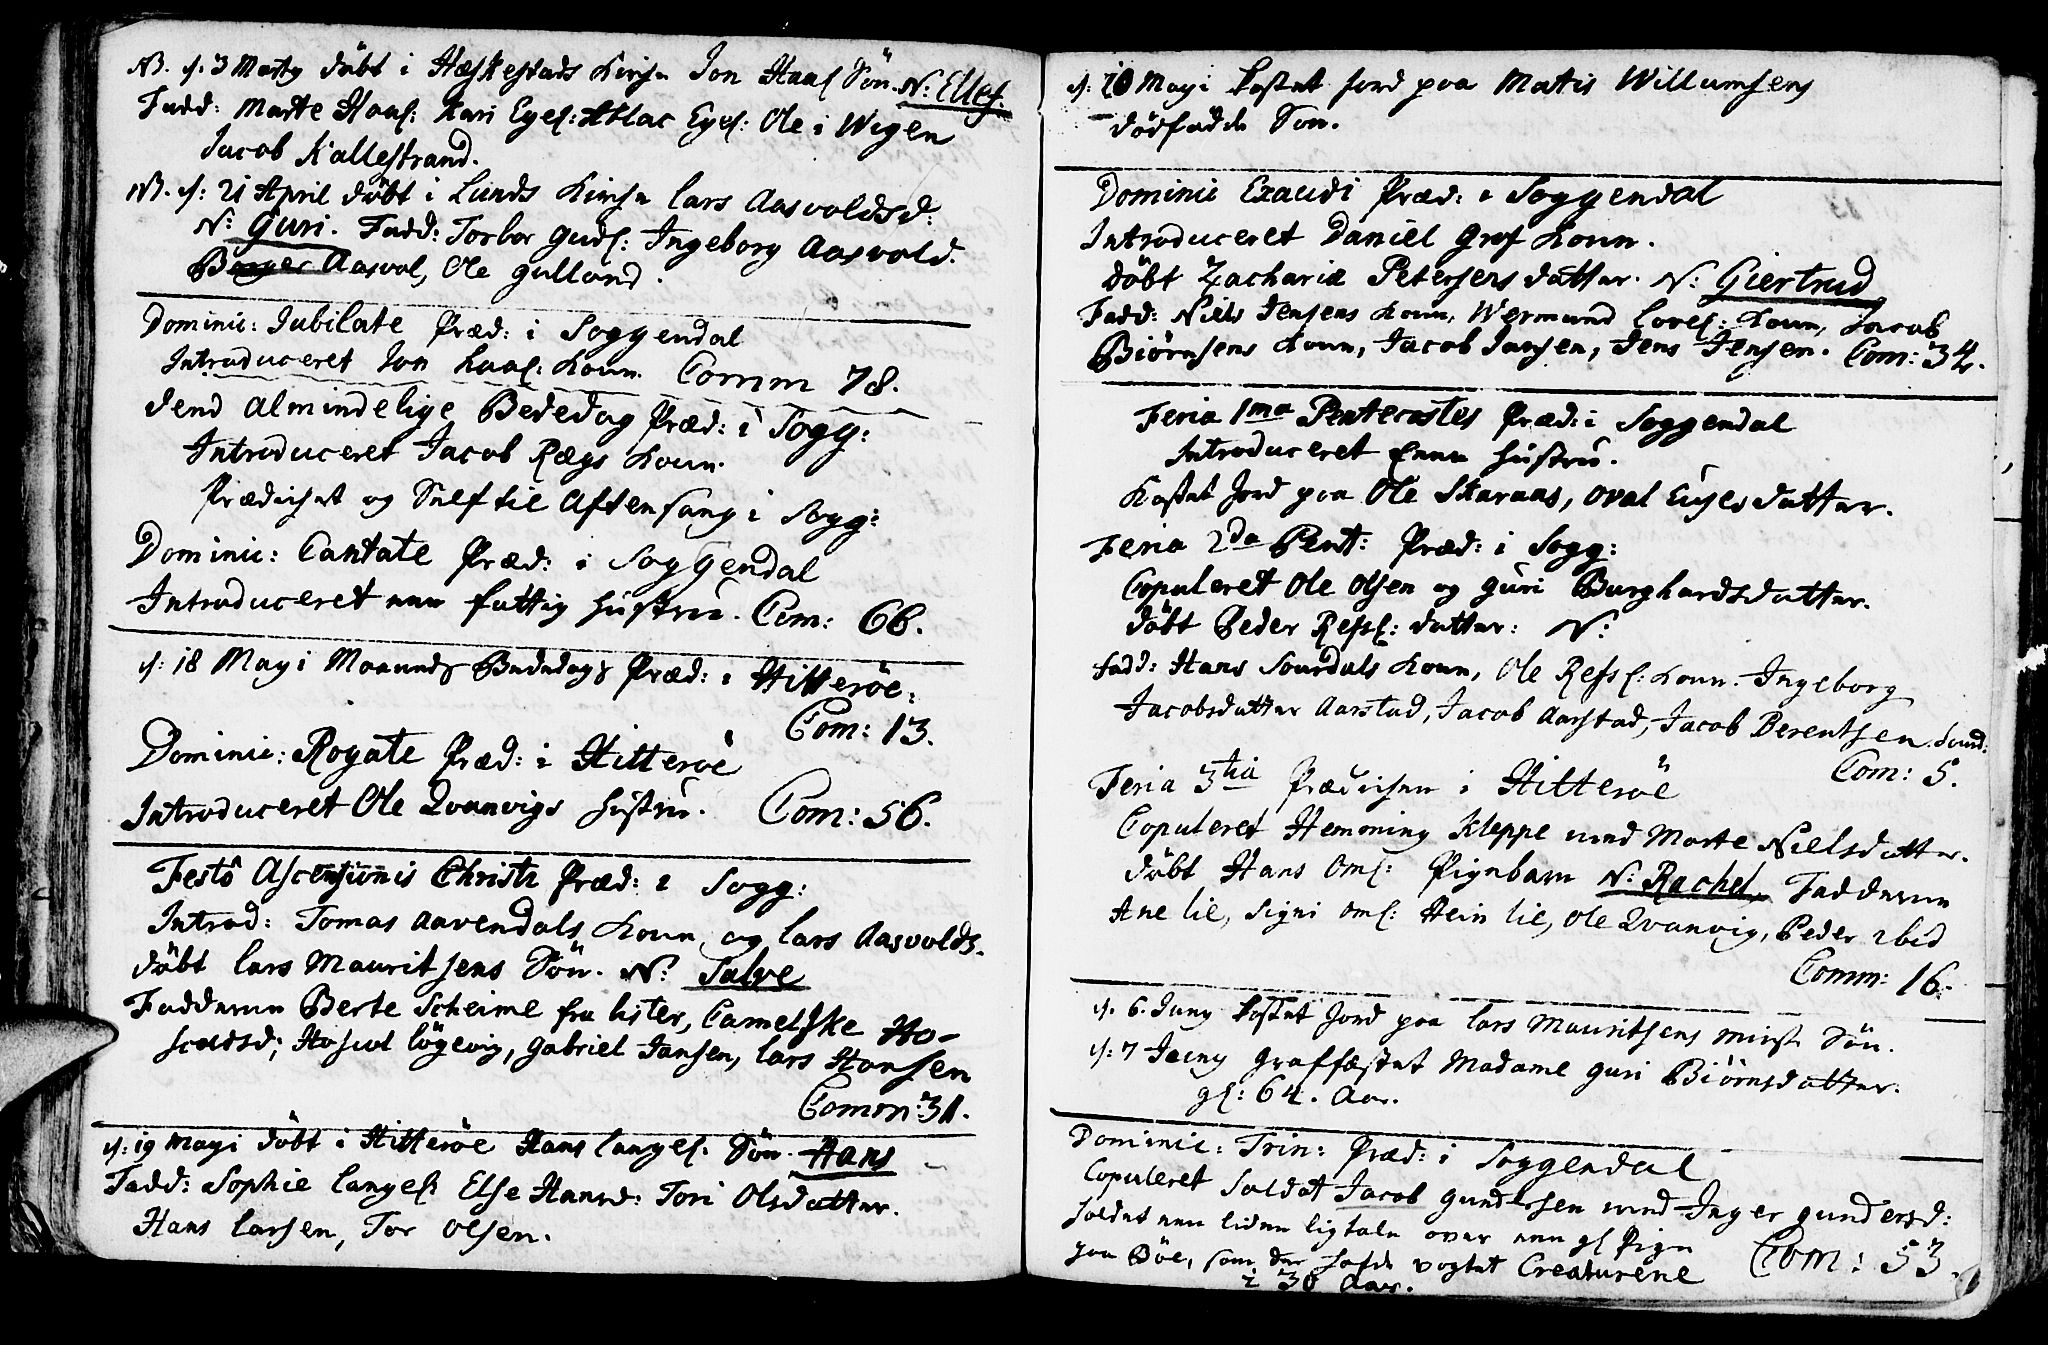 NB. d. 3 Marty döbt i Hæskestads Kirche Jon Haaſ Sön. N: Ellef.
Fadd: Marte Haaſ: Kari Egeſ: Atlac Egeſ: Ole i Wigen
Jacob Kallestrand.
NB. d: 21 April döbt i Lunds Kirche Lars Aasvoldsd:
N: Guri. Fadd: Torbor Gudſ: Ingeborg Aasvold.
Aasvol, Ole Gulland.
Dominic: Jubilate Præd: i Soggendal
Introduceret Jon Haaſ: Koun. Comm 78.
dend Almindelige Bededag Præd: i Sogg:
Introduceret Jacob Rægs Koun.
Prædichet og Self til Aftensang i Sogg:
Dominic: Cantate Præd: i Soggendal
Introduceret een fattig hustru. Com: 66.
d: 18 Mayi Maaneds Bededags Præd: i Hitteröe:
Com: 13.
Dominic: Rogate Præd: i Hitteröe
Introduceret Ole Qvanvigs hustru. Com: 56.
Festo Ascensionis Christi Præd: i Sogg:
Introd: Tomas Aavendals Koun og Lars Aasvolds.
döbt Lars Mauritsens Sön. N: Salve
Fadderne Berte Scheime fra Lister, Camelske Ho-
scudsd; Hoscul lögevig, Gabriel Jansen, Lars Hansen
Comm: 31.
d: 19 Mayi döbt i Hitteröe Hans Langeſ: Sön. Hans
Fadd: Sophie Langeſ: Else Hansd: Tori Olsdatter.
Hans Larsen, Tor Olsen.
d: 20 Mayi kastet jord paa Matis Willumsens
dödfødde Sön.
Dominic Exaudi Præd: i Soggendal
Introduceret Daniel Grof Koun.
döbt Zachariæ Petersens datter. N: Giertrud
Fadd: Niels Jensens Koun, Wermund Loveſ: Koun, Jacob
Biörnsens Koun, Jacob Jansen, Jens Jensen. Com: 34.
Feria 1ma Pentecostes Præd: i Soggendal
Introduceret Enne hustru.
Kastet jord paa Ole Skaraas, Oval Euges datter.
Feria 2da Pent: Præd: i Sogg:
Copuleret Ole Olsen og Guri Burghardsdatter.
döbt Peder Refsſ: datter: N:
Fadd: Hans Sourdals Koun, Ole Refsſ: Koun. Ingeborg
Jacobsdatter Aarstad, Jacob Aarstad, Jacob Berentsen Sund:
Com: 5.
Feria 3tia Prædichen i Hitteröe
Copuleret Hemming Kleppe med Marte Nielsdatter.
döbt Hans Omſ: Pigebarn N: Rachel, Fadderne
Ane lie, Signi Omſ: Hein lie, Ole Qvanvig, Peder ibid
Comm: 16.
d. 6. Juny kastet jord paa Lars Mauritsens minste Sön.
d: 7 Juny Graffæstet Madame Guri Biörnsdatter.
gſ: 64. Aar.
Dominic: Trin: Præd: i Soggendal
Copuleret Soldat Jacob Gundersen med Inger Gundersd:
holdet een liden ligtale over een gſ Pige
paa Böe, som der hafde vogtet Creaturene Com: 53.
i 30 Aar.